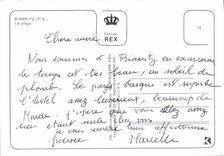 BIARRITZ (P.-A.)
La plage
EDITIONS
REX
Chère amie
Nous sommes à Biarritz en excursion
le temps est très beau, un soleil de
plomb. Le pays basque est superbe
l'hôtel assez beaucoup de
Monde. J'espère que vous allez
bien
je vous envoie mon affectueuse
pensée
Marcelle
K